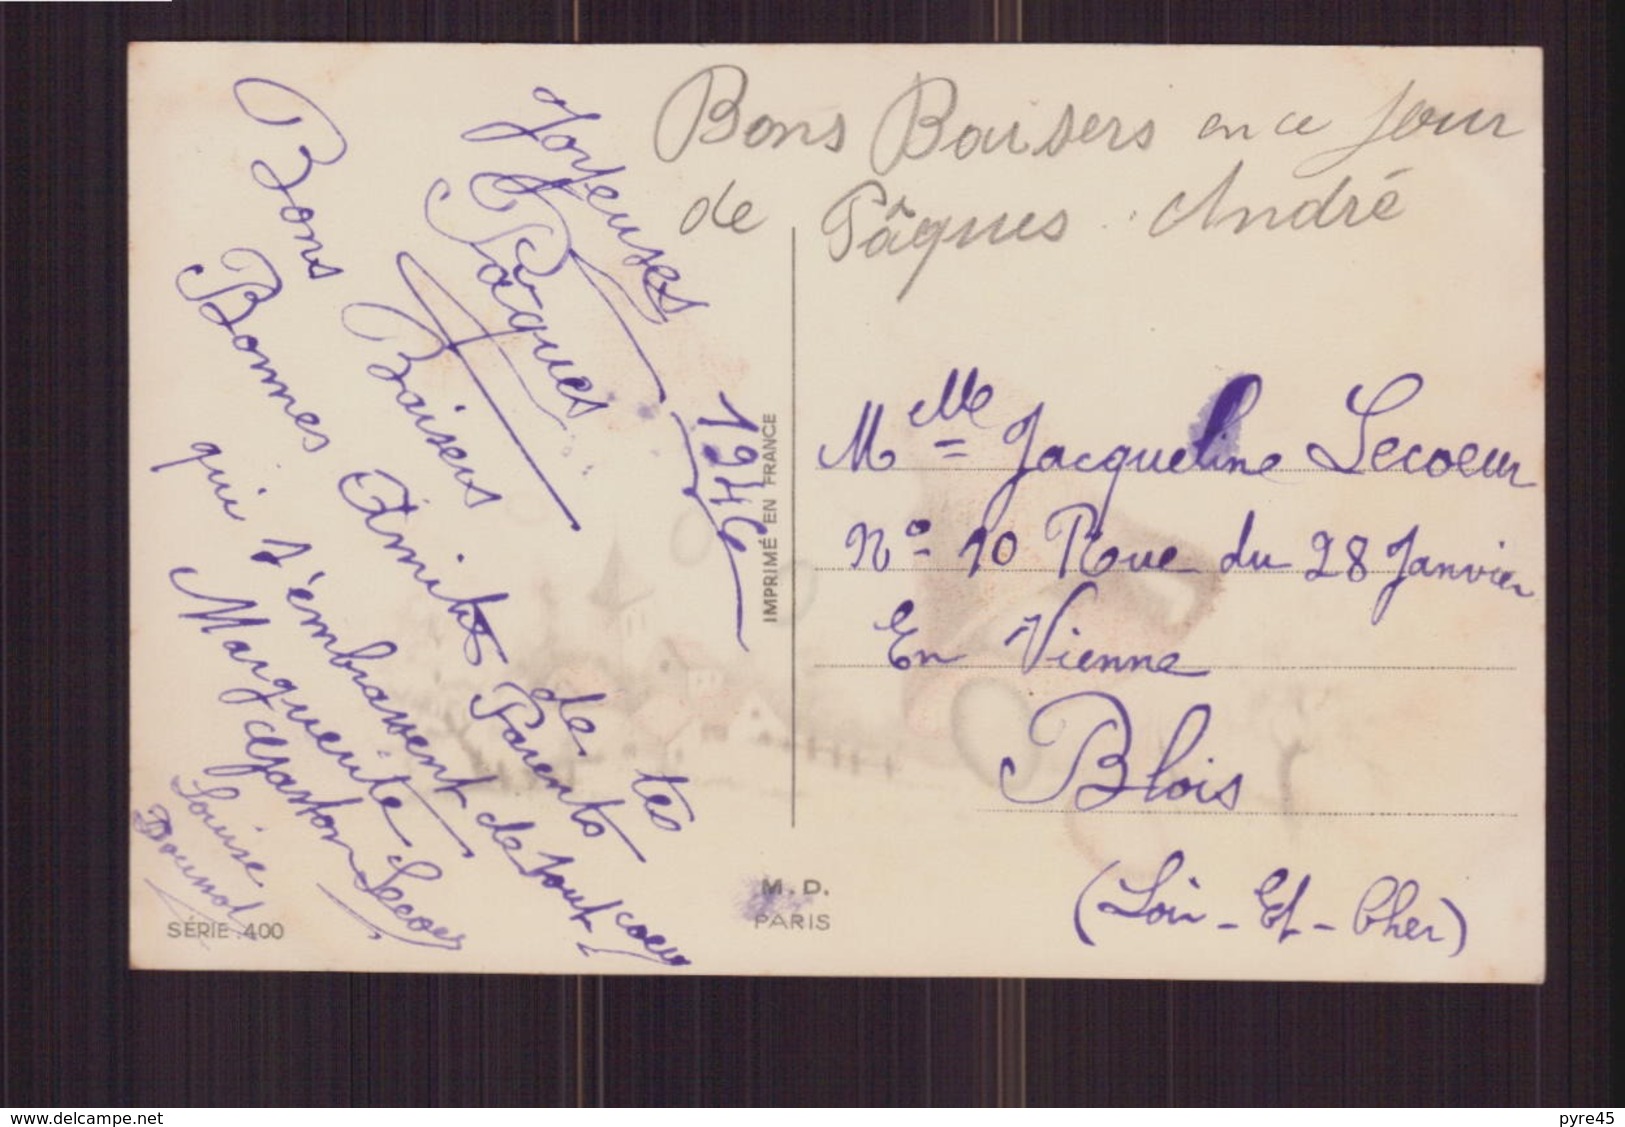 Bons Baisers en ce jour
de Pâques. André
Joyeuses
Pâques
1946
Bons Baisers
Bonnes Amitiés de tes
Parents
qui t'embrassent de tout coeur
Marguerite
Gaston Lecoeur
Louise
IMPRIMÉ EN FRANCE
Mlle Jacqueline Lecoeur
No 10 Rue du 28 Janvier
En Vienne
Blois
(Loir-Et-Cher)
M.D.
PARIS
SÉRIE 400
www.delcampe.net
pyre45